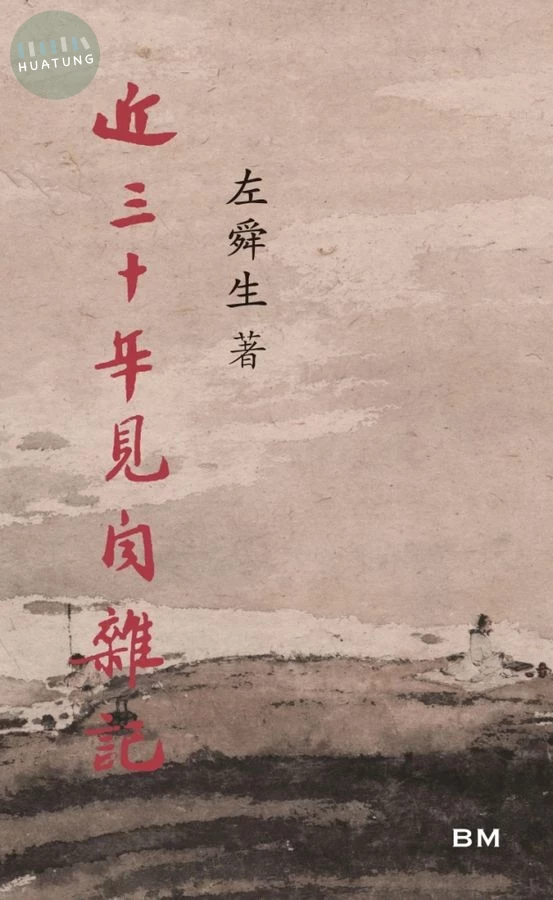 HUATUNG
左舜生 著
近三十年見聞雜記
BM